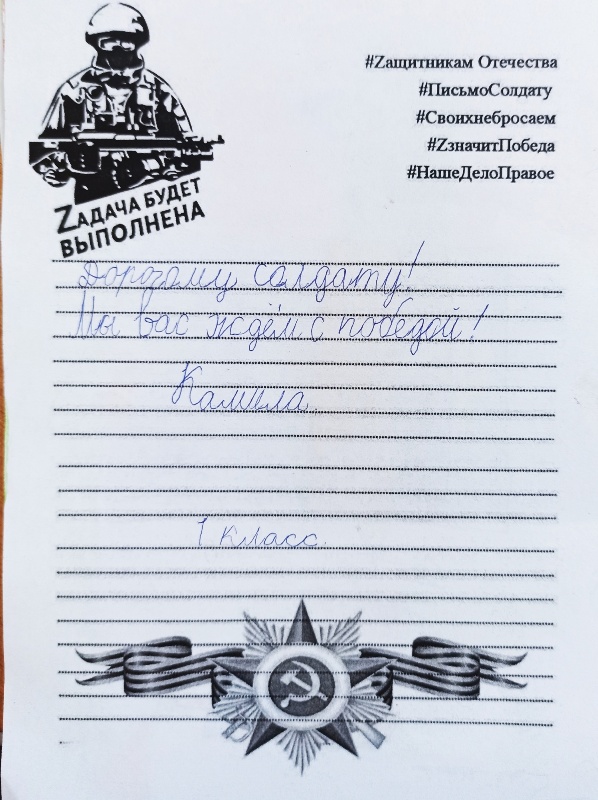 #Zащитникам Отечества
#ПисьмоСолдату
#Своихнебросаем
#ZзначитПобеда
#НашеДелоПравое
Zадача будет
выполнена
Дорогому солдату!
Мы вас ждём с победой!
Камила
1 класс.